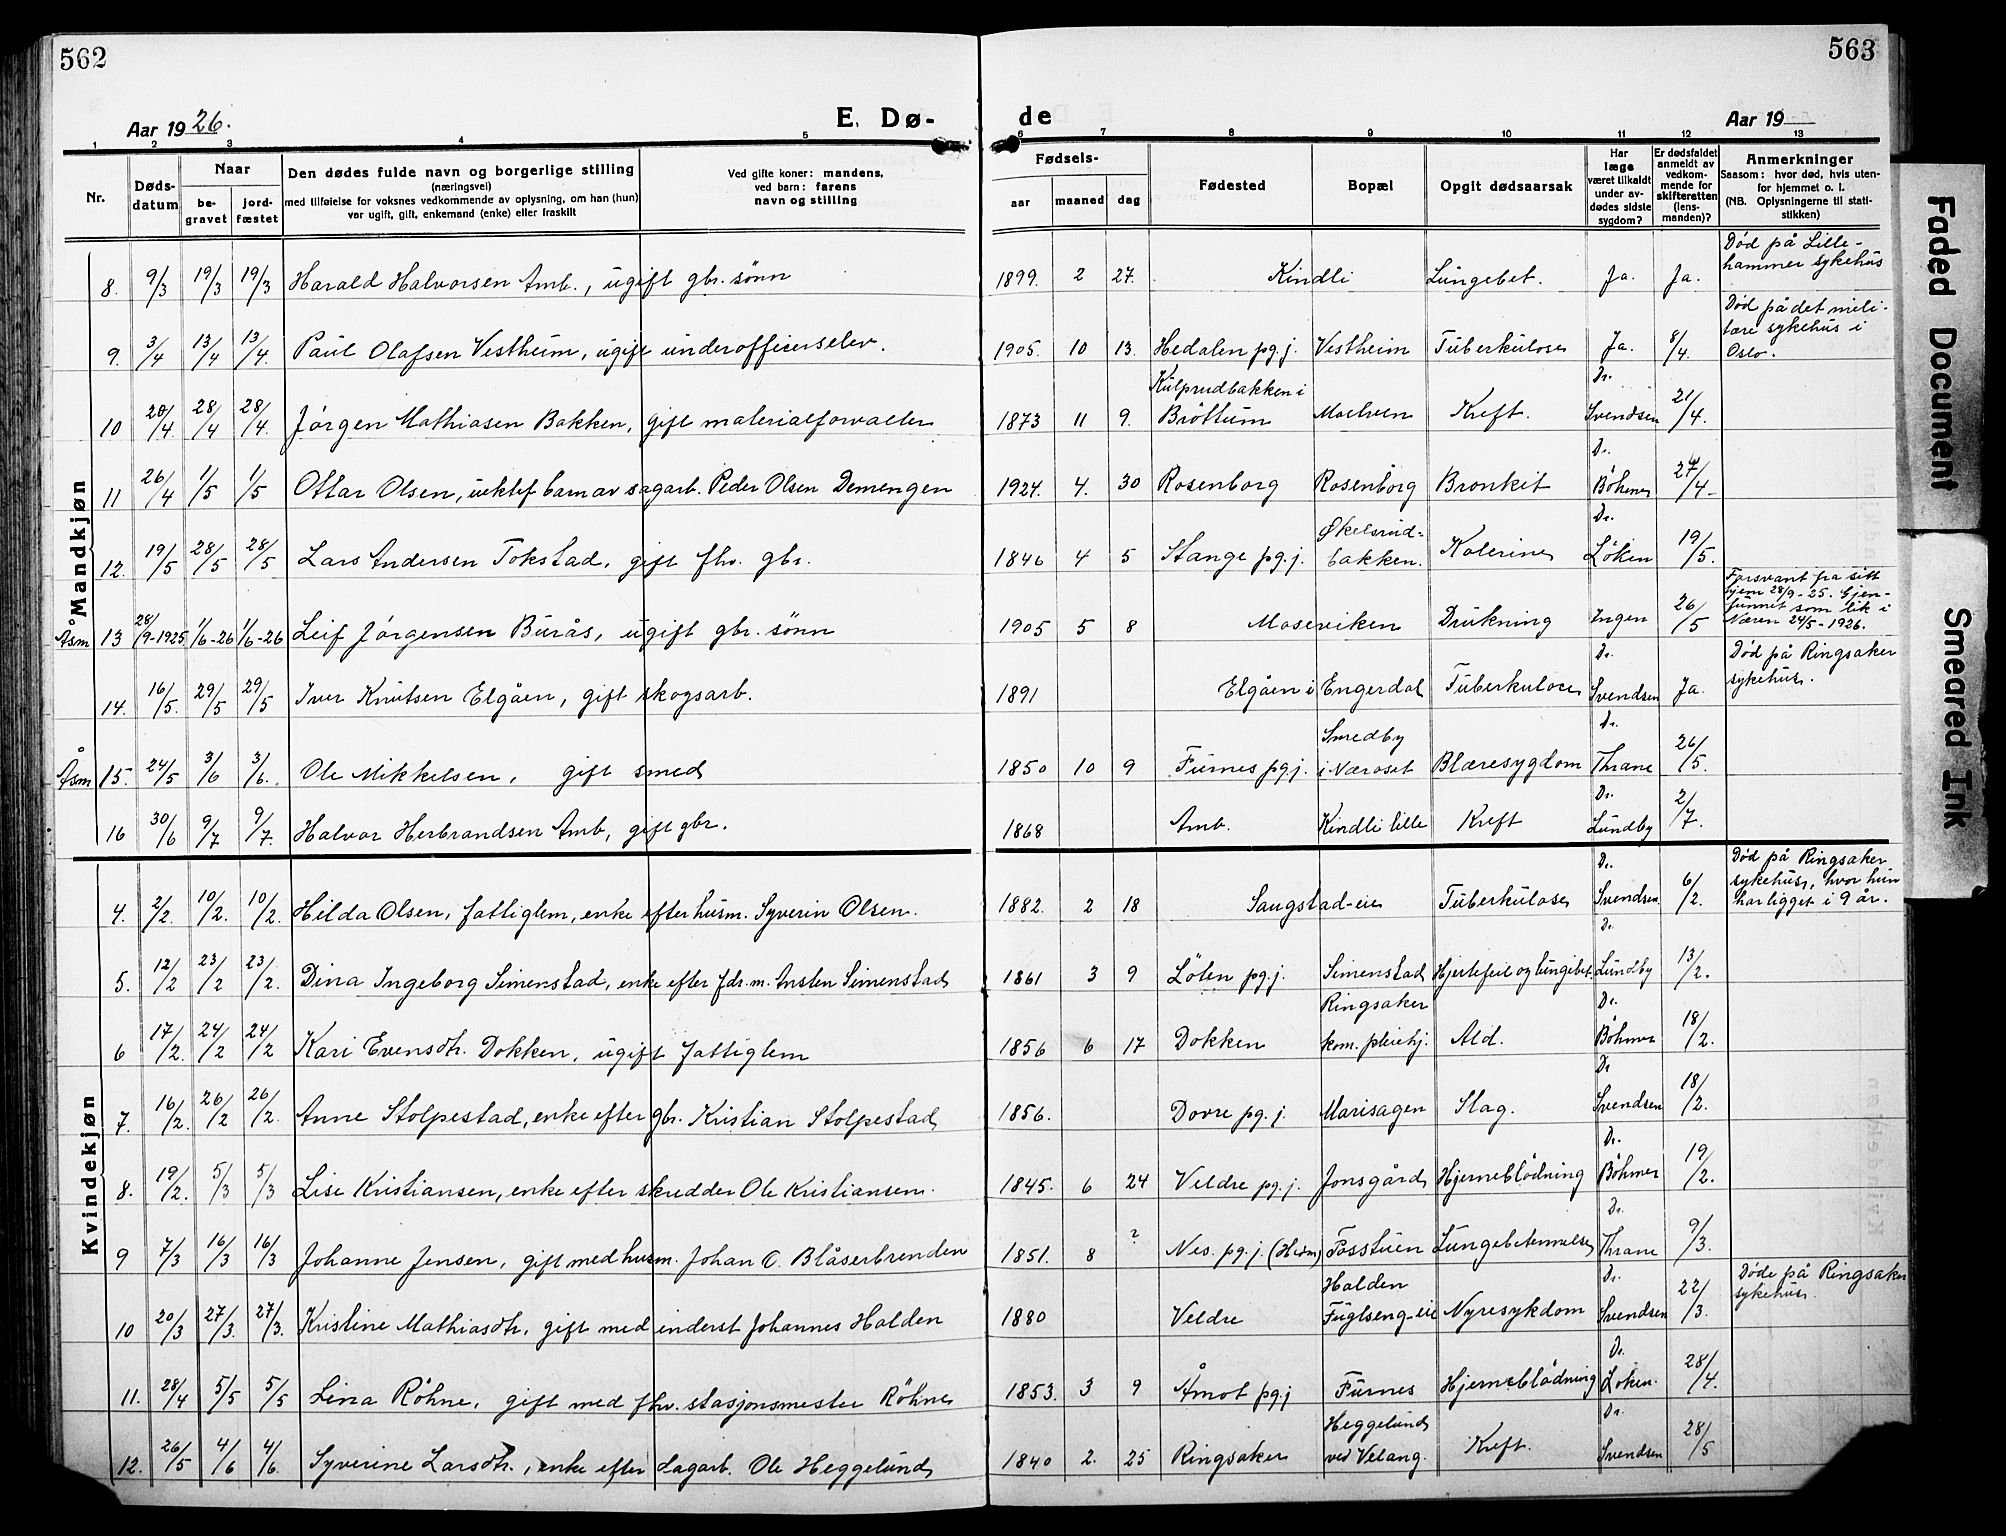 562
563
Aar 1926.
E. Dø-
de
Aar 19
1 2 3 4 5 6 7 8 9 10 11 12 13
Nr.
Døds-
datum
Naar
be-
gravet
jord-
fæstet
Den dødes fulde navn og borgerlige stilling
(næringsvei)
med tilføielse for voksnes vedkommende av oplysning, om han (hun)
var ugift, gift, enkemand (enke) eller fraskilt
Ved gifte koner: mandens,
ved barn: farens
navn og stilling
Fødsels-
aar maaned dag
Fødested
Bopæl
Opgit dødsaarsak
Har
læge
været tilkaldt
under av-
dødes sidste
sygdom?
Er dødsfaldet
anmeldt av
vedkom-
mende for
skifteretten
(lens-
manden)?
Anmerkninger
Saasom: hvor død, hvis uten-
for hjemmet o. l.
(NB. Oplysningerne til stati-
stikken)
Mandkjøn
8. 9/3 19/3 19/3 Harald Halvorsen Amb., ugift gbr. sønn 1899. 2 27. Kindli Lungebet. Ja. Ja. Død på Lille-
hammer sykehus
9. 3/4 13/4 13/4. Paul Olafsen Vestheim, ugift underofficerselev. 1905. 10 13. Hedalen pg.j. Vestheim Tuberkulose Ja. 8/4. Død på det mili-
tære sykehus i
Oslo.
10 20/4. 28/4 28/4. Jørgen Mathiasen Bakken, gift materialforvalter 1873 11 9. Kulprudbakken i
Bröttum Moelven Kreft. Dr.
Svendsen 21/4.
11 26/4 1/5 1/5 Ottar Olsen, uektef. barn av sagarb. Peder Olsen Demengen 1924. 4. 30 Rosenborg Rosenborg Bronkit Dr.
Böhmer 27/4-
12. 19/5 28/5 28/5 Lars Andersen Tokstad, gift fhv. gbr. 1846 4 5 Stange pg.j. Økelsrud-
bakken. Kolerine Dr.
Löken 19/5.
Åsm 13 28/9-1925 1/6-26 1/6-26 Leif Jørgensen Burås, ugift gbr. sønn 1905 5 8 Moseviken Drukning Ingen 26/5 Forsvant fra sitt
hjem 28/9-25. Gjen-
funnet som lik i
Næren 24/5-1926.
14. 16/5. 29/5 29/5 Iver Knutsen Elgåen, gift skogsarb. 1891 Elgåen i Engerdal Tuberkulose Dr.
Svendsen Ja. Død på Ringsaker
sykehus.
Åsm 15. 24/5 3/6 3/6. Ole Mikkelsen, gift smed 1850 10 9 Furnes pg.j. Smedby
i Næroset Blæresygdom Dr.
Thrane 26/5.
16 30/6 9/7 9/7. Halvor Herbrandsen Amb, gift gbr. 1868 Amb. Kindli lille Kreft Dr.
Lundby 2/7.
Kvindekjøn
4. 2/2. 10/2. 10/2. Hilda Olsen, fattiglem, enke efter husm. Syverin Olsen. 1882. 2 18 Saugstad-eie Tuberkulose Dr.
Svendsen 6/2. Død på Ringsaker
sykehus, hvor hun
har ligget i 9 år.
5. 12/2 23/2 23/2. Dina Ingeborg Simenstad, enke efter fdr. m. Ansten Simenstad 1861 3 9 Löten pg.j. Simenstad Hjertefeil og lungebet. Dr.
Lundby 13/2.
6 17/2. 24/2 24/2 Kari Evensdtr. Dokken, ugift fattiglem 1856 6 17 Dokken Ringsaker
kom. pleiehj. Ald. Dr.
Böhmer 18/2.
7. 16/2. 26/2 26/2. Anne Stolpestad, enke efter gbr. Kristian Stolpestad 1856. Dovre pg.j. Marisagen Slag. Dr
Svendsen 18/2.
8. 19/2. 5/3 5/3 Lise Kristiansen, enke efter skredder Ole Kristiansen. 1845. 6 24 Veldre pg.j. Jonsgård Hjerneblödning Dr.
Böhmer 19/2.
9 7/3 16/3 16/3 Johanne Jensen, gift med husm. Johan O. Blåserbrenden 1851. 8 ? Nes. pg.j. (Hedm) Fosstuen Lungebetennelse Dr.
Thrane 9/3.
10 20/3 27/3. 27/3. Kristine Mathiasdtr. gift med inderst Johannes Holden 1880 Veldre Holden
Fuglseng-eie Nyresykdom Dr.
Svendsen 22/3. Døde på Ringsaker
sykehus.
11. 28/4 5/5 5/5 Lina Röhne, gift med fhv. stasjonsmester Röhne 1853. 3 9 Åmot pg.j Furnes Hjerneblödning Dr.
Loken. 28/4.
12. 26/5 4/6 4/6. Syverine Larsdtr., enke efter dagarb. Ole Heggelund 1840 2. 25 Ringsaker Heggelund
ved Velang. Kreft. Dr.
Svendsen 28/5
Faded Document
Smeared Ink